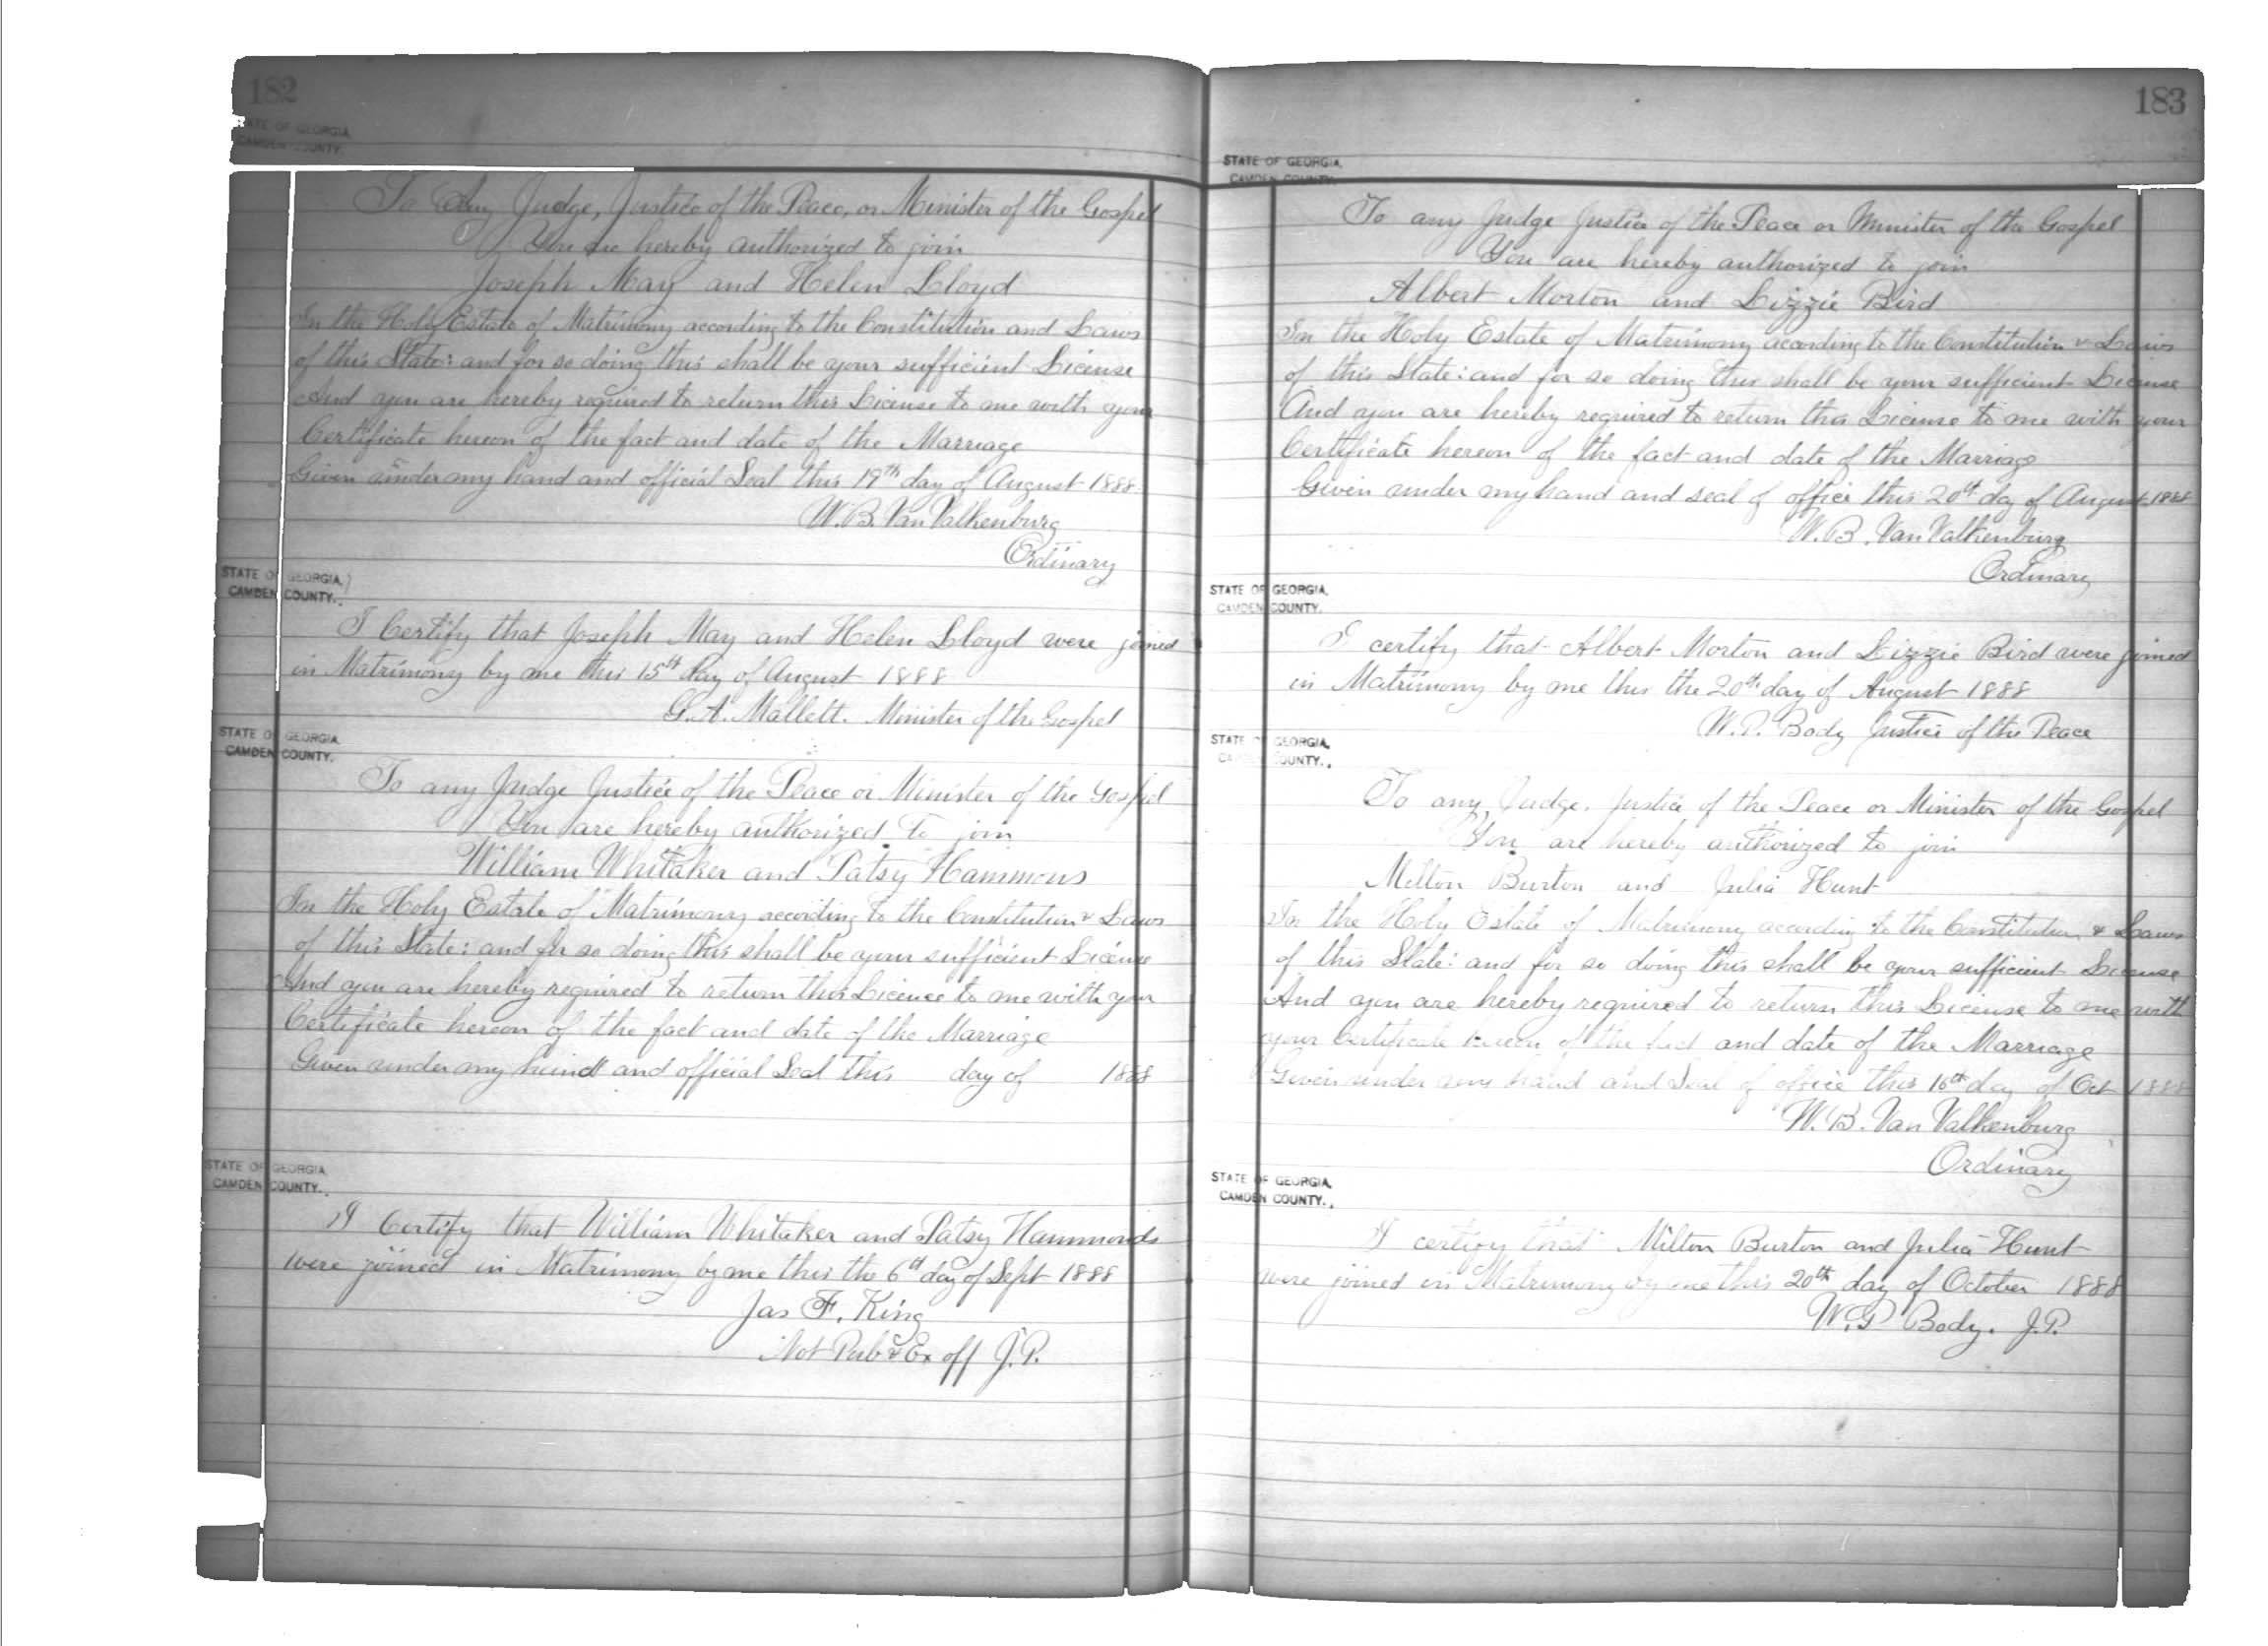 182
STATE OF GEORGIA,
CAMDEN COUNTY.
To Any Judge, Justice of the Peace, or Minister of the Gospel
You are hereby authorized to join
Joseph May and Helen Lloyd
In the Holy Estate of Matrimony according to the Constitution and Laws
of this State: and for so doing this shall be your sufficient License
And you are hereby required to return this License to me with your
Certificate hereon of the fact and date of the Marriage
Given under my hand and official Seal this 19th day of August 1888.
W. B. Van Valkenburg
Ordinary
STATE OF GEORGIA,
CAMDEN COUNTY.
I Certify that Joseph May and Helen Lloyd were joined
in Matrimony by me this 15th day of August 1888
G. A. Mallett. Minister of the Gospel
STATE OF GEORGIA,
CAMDEN COUNTY.
To any Judge Justice of the Peace or Minister of the Gospel
You are hereby authorized to join
William Whitaker and Patsy Hammons
In the Holy Estate of Matrimony according to the Constitution & Laws
of this State: and for so doing this shall be your sufficient License
And you are hereby required to return this Licence to me with your
Certificate hereon of the fact and date of the Marriage
Given under my hand and official Seal this day of 1888
STATE OF GEORGIA,
CAMDEN COUNTY.
I Certify that William Whitaker and Patsy Hammonds
were joined in Matrimony by me this the 6th day of Sept 1888
Jas F. King
Not Pub & Ex off J.P.
183
STATE OF GEORGIA,
CAMDEN COUNTY.
To any Judge Justice of the Peace or Minister of the Gospel
You are hereby authorized to join
Albert Morton and Lizzie Bird
In the Holy Estate of Matrimony according to the Constitution & Laws
of this State: and for so doing this shall be your sufficient License
And you are hereby required to return this License to me with your
Certificate hereon of the fact and date of the Marriage
Given under my hand and seal of office this 20th day of August 1888
W. B. Van Valkenburg
Ordinary
STATE OF GEORGIA,
CAMDEN COUNTY.
I certify that Albert Morton and Lizzie Bird were joined
in Matrimony by me this the 20th day of August 1888
W. P. Body Justice of the Peace
STATE OF GEORGIA,
CAMDEN COUNTY.
To any Judge. Justice of the Peace or Minister of the Gospel
You are hereby authorized to join
Milton Burton and Julia Hunt
In the Holy Estate of Matrimony according to the Constitution & Laws
of this State: and for so doing this shall be your sufficient License
And you are hereby required to return this License to me with
your Certificate hereon of the fact and date of the Marriage
Given under my hand and Seal of office this 16th day of Oct 1888
W. B. Van Valkenburg
Ordinary
STATE OF GEORGIA,
CAMDEN COUNTY.
I certify that Milton Burton and Julia Hunt
were joined in Matrimony by me this 20th day of October 1888
W. P Body. J.P.